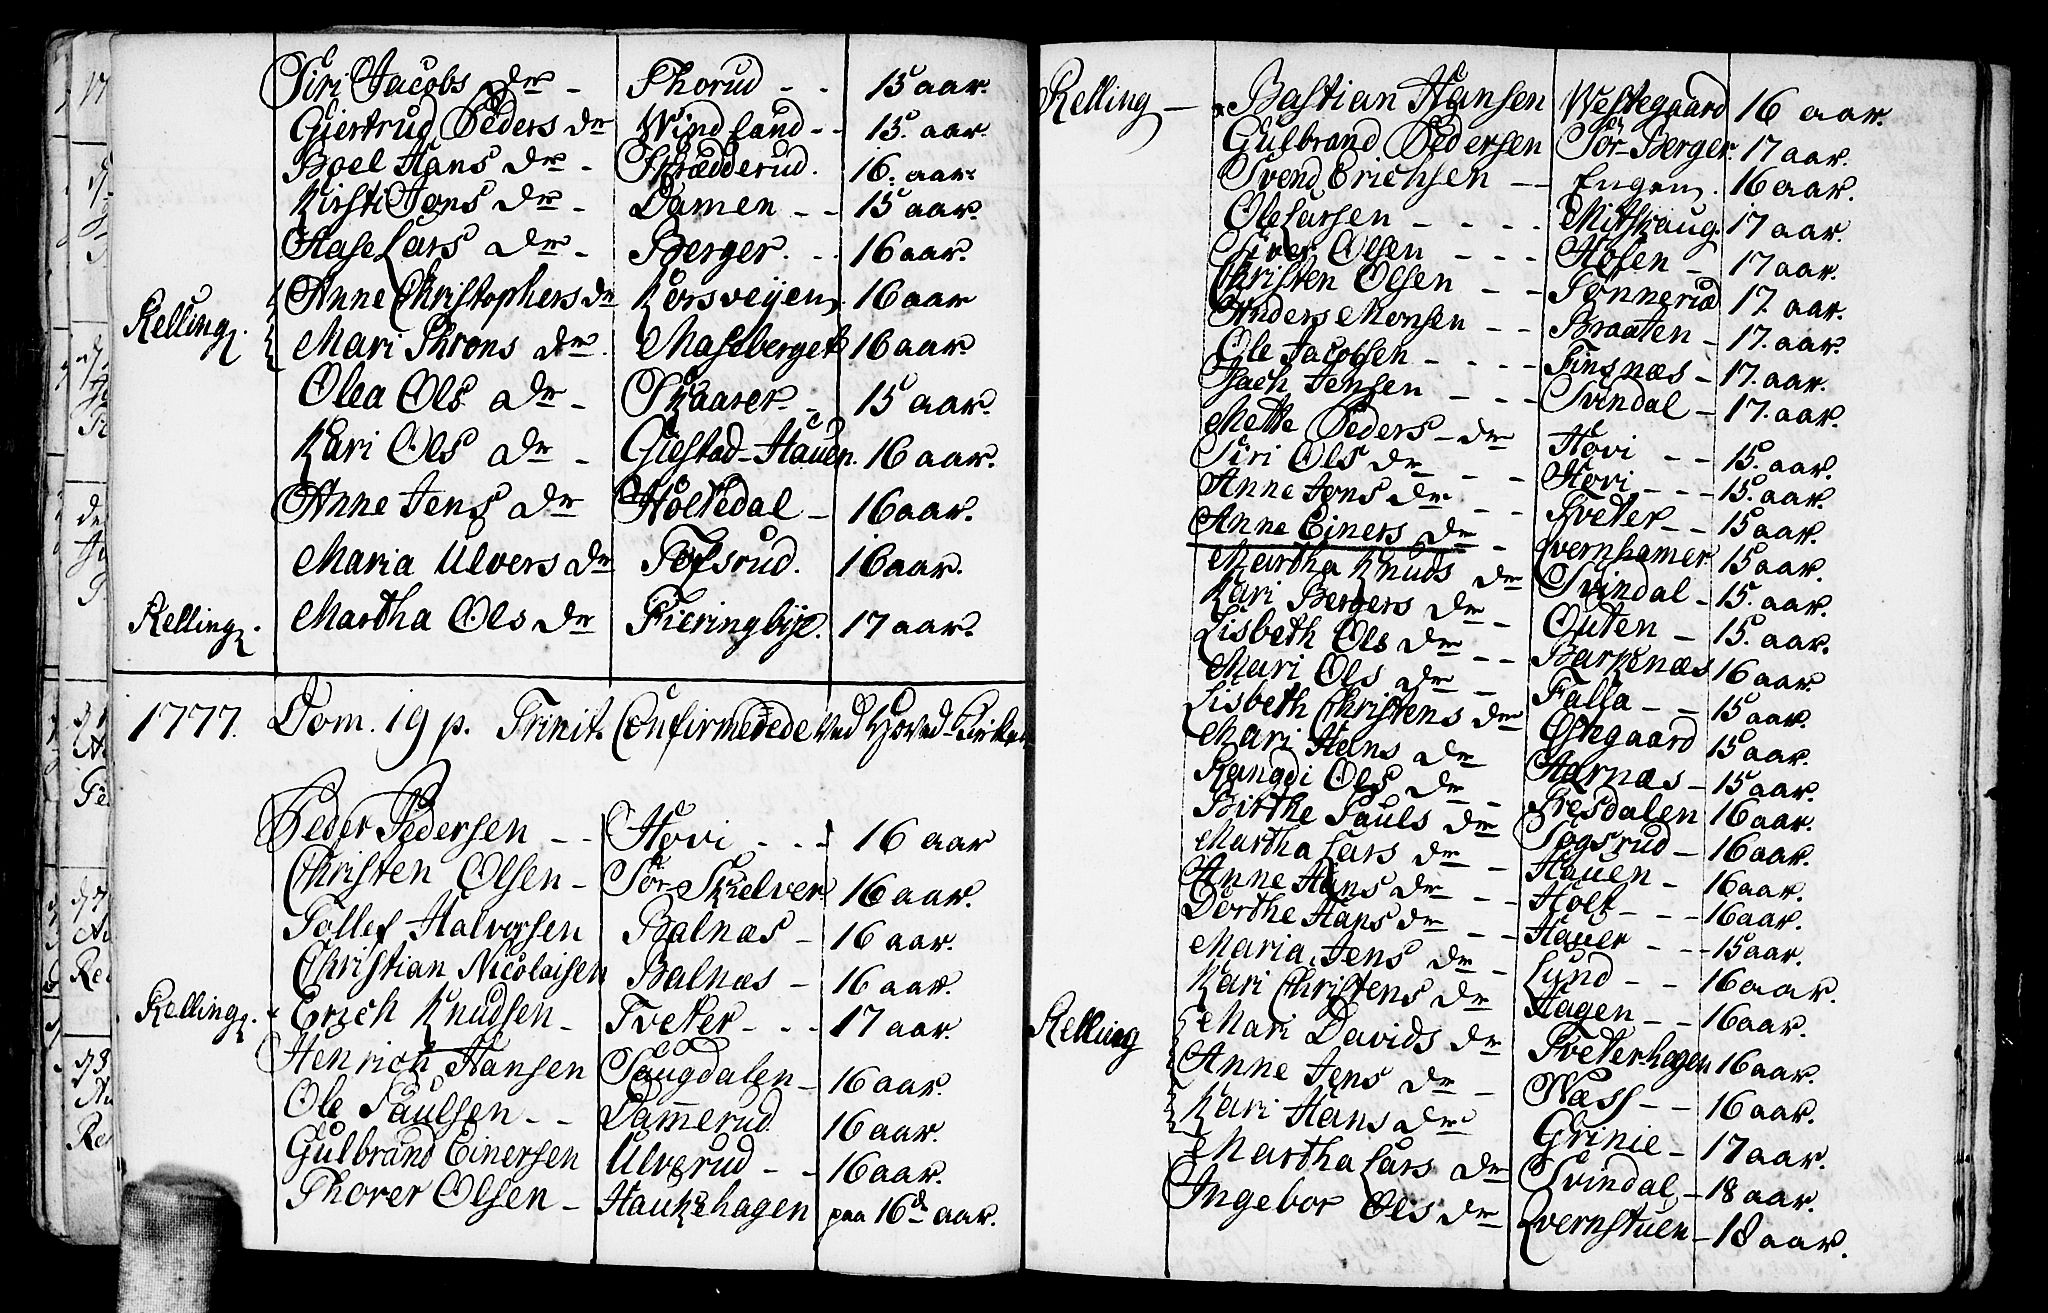 Siri Jacobs dr - Thorud - - 15 aar.
Giertrud Peders dr Windsand - - 15. aar.
Boel Hans dr - Skrædderud. 16. aar.
Kirsti Jens dr - Damen - - 15 aar.
Aase Lars dr - Berger. - - 16 aar.
Anne Christophers dr Korsveyen 16 aar
Relling. Mari Throns dr. Maseberget 16 aar.
Olea Ols dr - Skaarer - 15 aar.
Kari Ols dr - Giestad-Hauen. 16 aar.
Anne Jens dr Holtedal - 16 aar.
Maria Ulvers dr Tofsrud. 16 aar.
Relling. Martha Ols dr Fieringbye. 17 aar.
1777. Dom. 19 p. Trinit. Confirmerede ved Hoved-Kirken
Peder Pedersen - - Hovi - - - 16 aar
Christen Olsen - Sör-Skielver 16 aar.
Tollef Halvorsen Balnæs - 16 aar.
Christian Nicolaisen Balnæs - 16 aar.
Relling. Erich Knudsen - Tveter - - - 17 aar.
Henrich Hansen Saugdalen - 16 aar.
Ole Paulsen - - Dam̅erud 16 aar.
Gulbrand Einersen Ulverud - - 16 aar.
Thorer Olsen - Haukehagen paa 16de aar.
Relling - Bastian Hansen Westegaard 16 aar.
Gulbrand Pedersen Sör-Berger. 17 aar.
Svend Erichsen - - Engen. 16 aar.
Ole Larsen - - - - Mitskaug. 17 aar.
Siver Olsen - - - Hofen - 17 aar.
Christen Olsen - - Tonneriæ 17. aar.
Anders Monsen - - Braaten - 17. aar.
Ole Jacobsen - - - - Finsnæs - 17. aar.
Isach Jensen - - - Svindal - 17. aar.
Mette Peders - dr Hovi - - 15. aar.
Siri Ols dr - - Hovi - - - 15. aar.
Anne Jens dr. - - Tveter - - 15 aar.
Anne Einers dr - Qvernhamer 15 aar.
Martha Knuds dr Svindal - 15. aar.
Kari Bergers dr - - Outen - 15. aar.
Lisbeth Ols dr - - Barkenæs 16 aar.
Mari Ols dr - Falla - - 15 aar.
Lisbeth Christens dr Ostegaard 15 aar.
Mari Hans dr Aarnæs - 15 aar.
Rangdi Ols dr - Fresdalen 16 aar.
Birthe Pauls dr Togsrud - 16 aar.
Martha Lars dr - Hauen - 16 aar.
Anne Hans dr - - Holt - - - 16 aar.
Dorthe Hans dr - - Hauer - - - 15 aar.
Maria Jens dr - Lund - - 16 aar.
Kari Christens dr Hagen - - 16 aar.
Relling Mari Davids dr Tveterhagen 16 aar.
Anne Jens dr - Næss - - 16 aar.
Kari Hans dr Grinie - 17 aar.
Martha Lars dr Svindal - 18 aar.
Ingebor Ols dr Qvernstuen - 18 aar.